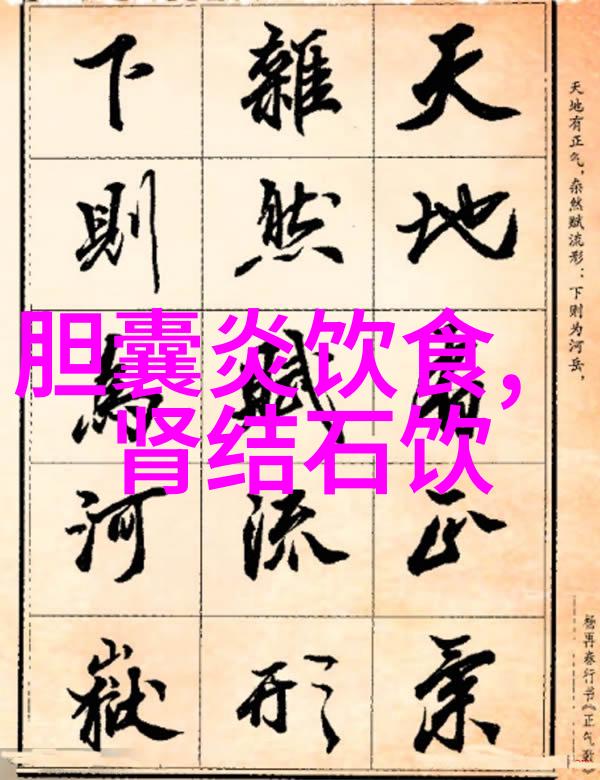 天地有正氣
雜然賦流形
下則為河嶽
胆囊炎饮食，
肾结石饮
天地有正气，杂然赋流形：下则为河岳，
杨再春行书《正气歌》